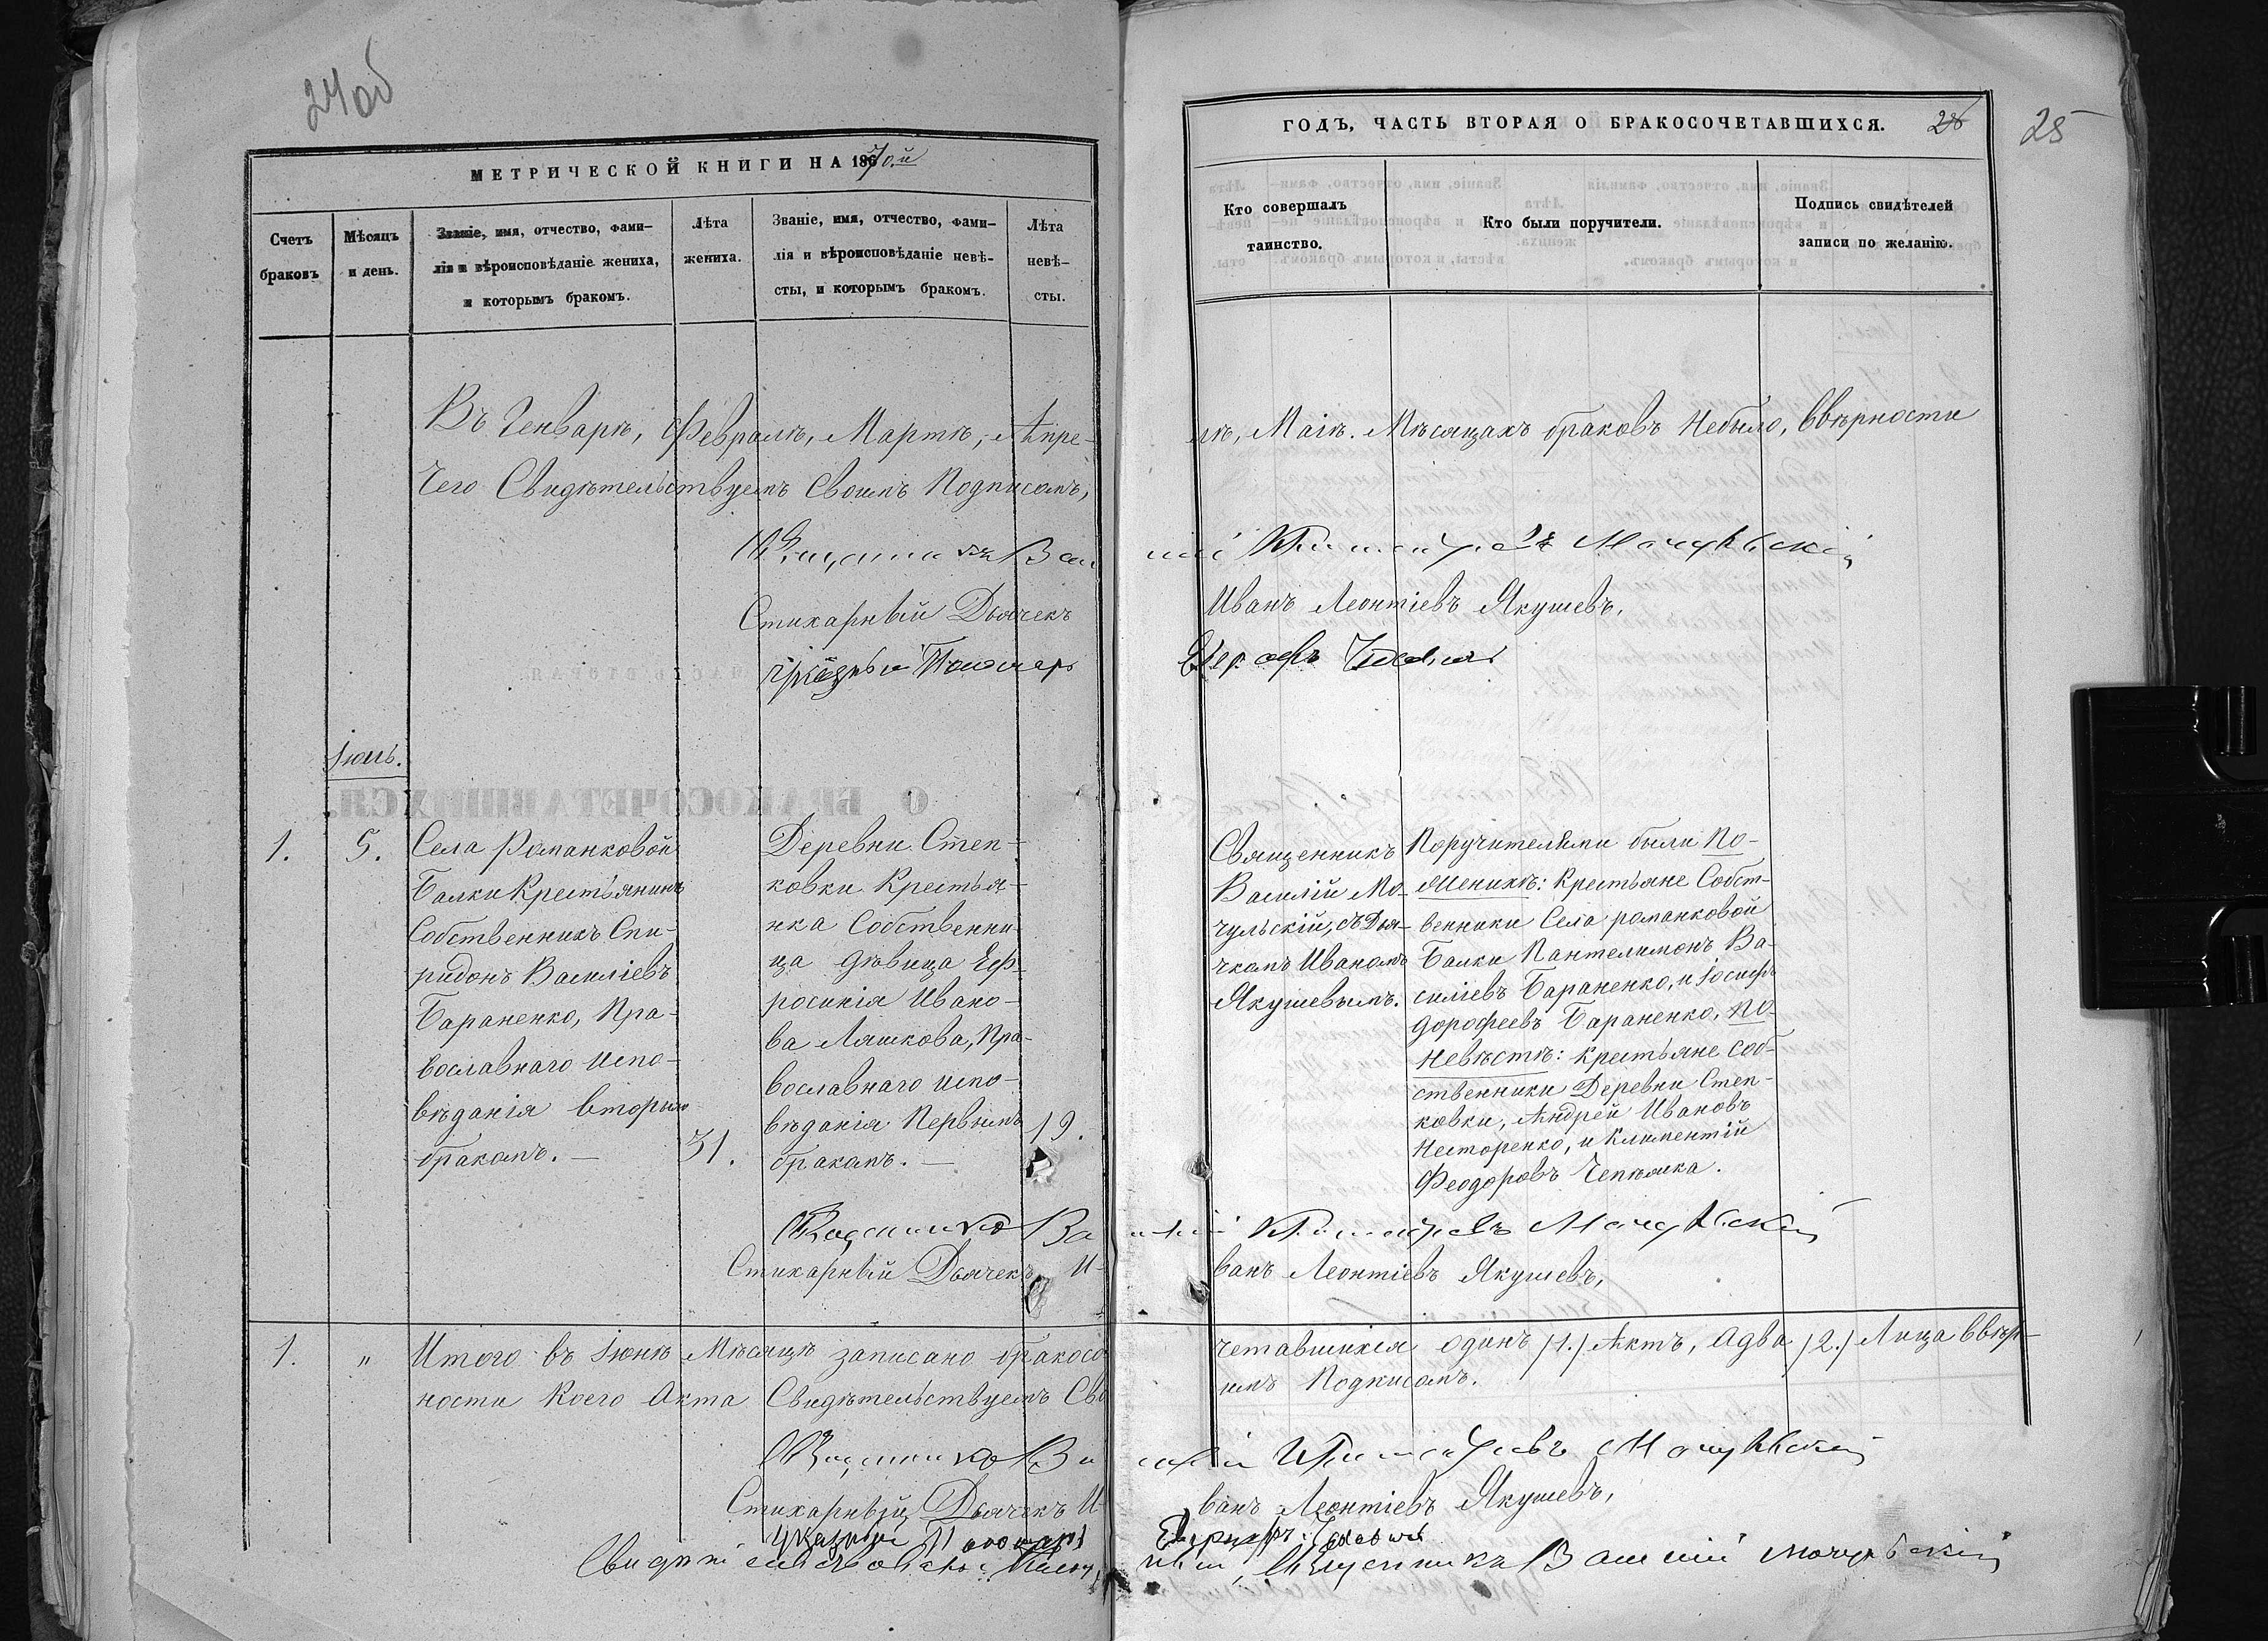 24об
МЕТРИЧЕСКОЙ КНИГИ НА 1870.й
Счетъ браковъ
Мѣсяцъ и день.
Званіе, имя, отчество, фами-
лія и вѣроисповѣданіе жениха,
и которымъ бракомъ.
Лѣта жениха.
Званіе, имя, отчество, фами-
лія и вѣроисповѣданіе невѣ-
сты, и которымъ бракомъ.
Лѣта невѣ-
сты.
ГОДЪ, ЧАСТЬ ВТОРАЯ О БРАКОСОЧЕТАВШИХСЯ.
25
Кто совершалъ
таинство.
Кто были поручители.
Подпись свидѣтелей
записи по желанію.
Въ Генварѣ, Февралѣ, Мартѣ, Апре-
лѣ, Маіѣ. Мѣсяцахъ браковъ Небыло, Ввѣрности
Чего Свидѣтельствуемъ Своимъ Подписомъ,
Стихарный Дьячекъ
Иванъ Леонтіевъ Якушевъ,
Указный Пономарь
Іюнь.
1.
5.
Села Романковой
Балки Крестьянинъ
Собственникъ Спи-
ридонъ Василіевъ
Бараненко, Пра-
вославнаго испо-
вѣданія вторымъ
бракомъ. —
31.
Деревни Степ-
ковки Крестья-
нка Собственни-
ца дѣвица Еф-
росинія Ивано-
ва Ляшкова, Пра-
вославнаго испо-
вѣданія Первымъ
бракомъ. —
19.
Священникъ
Василій Мо-
чульскій, съ Дья-
чкомъ Иваномъ
Якушевымъ.
Поручителями были По-
Женихѣ: Крестьяне Собст-
венники Села романковой
Балки Пантелимонъ Ва-
силіевъ Бараненко, и Іосифъ
дорофеевъ Бараненко, по-
Невѣстѣ: крестьяне соб-
ственники Деревни Степ-
ковки, Андрей Ивановъ
Несторенко, и Климентій
Феодоровъ Чепѣлка.
Стихарный Дьячекъ И-
ванъ Леонтіевъ Якушевъ,
1.
"
Итого въ Іюнѣ Мѣсяцѣ записано бракосо
четавшихся одинъ /1./ Актъ, Адва /2./ Лица Ввѣр-
ности Коего Акта Свидѣтельствуемъ Сво
имъ Подписомъ.
Стихарный Дьячекъ И-
ванъ Леонтіевъ Якушевъ,
Указный Пономарь
Священникъ Василій Мочульскій